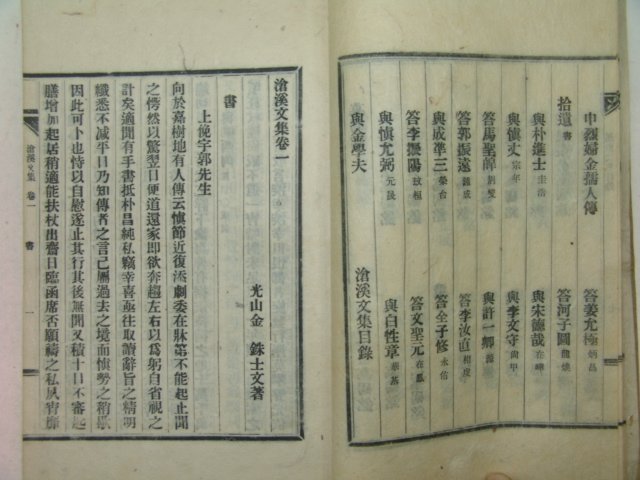 申婦金孺人傳 答姜允極 炳昌
拾遺 書 答河子圖 龍煥
與朴進士 圭浩 與宋德哉 在
與愼丈 宗年 與李文守 尙甲
答馬聖 與許一卿
答郭振遠 鍾咸 答李汝直 相度
與成準三 榮台 答全子修 永佑
答李陽 致極 答文聖元 在鳳
與愼允弼 元晟 與白性章
與金學夫 滄溪文集目錄
滄溪文集卷一
光山金 銖士文著
書
上俛宇郭先生
向於嘉樹地有人傳云愼節近復添劇委在牀第不能起止聞
之愕然以驚翌日便道還家卽欲奔趨左右以爲躬自省視之
計矣適聞有手書抵朴昌純私竊幸喜亟往取讀辭旨之精明
纖悉不减平日乃知傳者之言已屬過去之境而愼勢之稍歇
因此可卜也恃以自慰遂止其行其後無聞又積十日不審起
膳增加起居稍適能扶杖出齋日臨凾席否願禱之私夙宵靡
滄溪文集 卷一 書 一